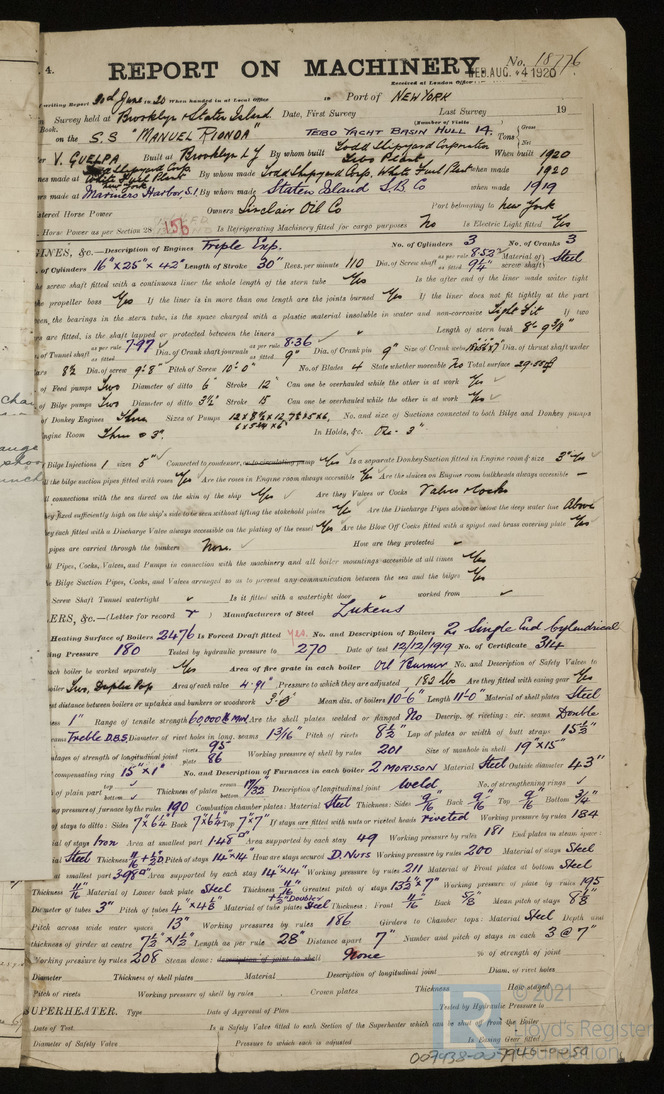 4.
REPORT ON MACHINERY
No. 18776
WED. AUG. 4 1920
Received at London Office
writing Report 2nd June 1920 When handed in at Local Office
Port of NEW YORK
Survey held at Brooklyn & Staten Island Date, First Survey Last Survey 19
Book.
(Number of Visits
on the S.S "MANUEL RIONDA" TEBO YACHT BASIN HULL 14. Tons Gross Net
V. GUELPA Built at Brooklyn N.Y By whom built Todd Shipyard Corporation Tebo Plant When built 1920
made at White Fuel Plant New York By whom made Todd Shipyard Corp. White Fuel Plant when made 1920
made at Mariners Harbor S.I. By whom made Staten Island S.B. Co when made 1919
Horse Power Owners Sinclair Oil Co Port belonging to New York
Horse Power as per Section 28 156 Is Refrigerating Machinery fitted for cargo purposes No Is Electric Light fitted Yes
INES, &c.—Description of Engines Triple Exp. No. of Cylinders 3 No. of Cranks 3
of Cylinders 16" x 25" x 42" Length of Stroke 30" Revs. per minute 110 Dia. of Screw shaft as per rule 8.52 as fitted 9¼" Material of screw shaft Steel
the screw shaft fitted with a continuous liner the whole length of the stern tube Yes Is the after end of the liner made water tight
the propeller boss Yes If the liner is in more than one length are the joints burned Yes If the liner does not fit tightly at the part
the bearings in the stern tube, is the space charged with a plastic material insoluble in water and non-corrosive Tight Fit If two
are fitted, is the shaft lapped or protected between the liners Length of stern bush
of Tunnel shaft as per rule 7.97 as fitted Dia. of Crank shaft journals as per rule 8.36 as fitted 9" Dia. of Crank pin 9" Size of Crank webs Dia. of thrust shaft under
Dia. of screw 9'-8" Pitch of Screw 10'-0" No. of Blades 4 State whether moveable No Total surface
of Feed pumps Two Diameter of ditto 6" Stroke 12" Can one be overhauled while the other is at work Yes
of Bilge pumps Two Diameter of ditto 3½" Stroke 15 Can one be overhauled while the other is at work Yes
of Donkey Engines Three Sizes of Pumps No. and size of Suctions connected to both Bilge and Donkey pumps
Engine Room Three @ 3" In Holds, &c. One - 3"
Bilge Injections 1 sizes 5" Connected to condenser, or to circulating pump Yes Is a separate Donkey Suction fitted in Engine room & size 3" Yes
the bilge suction pipes fitted with roses Yes Are the roses in Engine room always accessible Yes Are the sluices on Engine room bulkheads always accessible —
connections with the sea direct on the skin of the ship Yes Are they Valves or Cocks Valves & Cocks
fixed sufficiently high on the ship's side to be seen without lifting the stokehold plates Yes Are the Discharge Pipes above or below the deep water line Above
each fitted with a Discharge Valve always accessible on the plating of the vessel Yes Are the Blow Off Cocks fitted with a spigot and brass covering plate Yes
pipes are carried through the bunkers None. How are they protected
Pipes, Cocks, Valves, and Pumps in connection with the machinery and all boiler mountings accessible at all times Yes
Bilge Suction Pipes, Cocks, and Valves arranged so as to prevent any communication between the sea and the bilges Yes
Screw Shaft Tunnel watertight Is it fitted with a watertight door worked from
ERS, &c.—(Letter for record r) Manufacturers of Steel Lukens
Heating Surface of Boilers 2476 Is Forced Draft fitted yes. No. and Description of Boilers 2 Single End Cylindrical
Pressure 180 Tested by hydraulic pressure to 270 Date of test 12/12/1919 No. of Certificate 314
each boiler be worked separately Yes Area of fire grate in each boiler Oil Burner No. and Description of Safety Valves to
boiler Two, Duplex Pop Area of each valve 4.91" Pressure to which they are adjusted 182 lbs Are they fitted with easing gear Yes
distance between boilers or uptakes and bunkers or woodwork 3'-0" Mean dia. of boilers 10'-6" Length 11'-0" Material of shell plates Steel
1" Range of tensile strength 60000 lb Min Are the shell plates welded or flanged No Descrip. of riveting: cir. seams Double
seams Treble D.B.S Diameter of rivet holes in long. seams 13/16" Pitch of rivets 8½ Lap of plates or width of butt straps 15½"
of strength of longitudinal joint rivets 95 plate 86 Working pressure of shell by rules 201 Size of manhole in shell 19" x 15"
compensating ring 15" x 1" No. and Description of Furnaces in each boiler 2 MORISON Material Steel Outside diameter 43"
of plain part top bottom Thickness of plates crown bottom 17/32 Description of longitudinal joint Weld No. of strengthening rings
pressure of furnace by the rules 190 Combustion chamber plates: Material Steel Thickness: Sides 9/16 Back 9/16 Top 9/16 Bottom 3/4"
of stays to ditto: Sides Back Top 7" x 7" If stays are fitted with nuts or riveted heads riveted Working pressure by rules 184
of stays Iron Area at smallest part 1.48" Area supported by each stay 49 Working pressure by rules 181 End plates in steam space:
Steel Thickness Pitch of stays 14" x 14" How are stays secured D. Nuts Working pressure by rules 200 Material of stays Steel
at smallest part 3.98" Area supported by each stay 14" x 14" Working pressure by rules 211 Material of Front plates at bottom Steel
Thickness 11/16 Material of Lower back plate Steel Thickness 11/16 Greatest pitch of stays 13½ x 7" Working pressure of plate by rules 195
Diameter of tubes 3" Pitch of tubes Material of tube plates Steel Thickness: Front 11/16 Back 5/8 Mean pitch of stays
Pitch across wide water spaces 13" Working pressures by rules 186 Girders to Chamber tops: Material Steel Depth and
thickness of girder at centre Length as per rule 28" Distance apart 7" Number and pitch of stays in each 3 @ 7"
Working pressure by rules 208 Steam dome: description of joint to shell None % of strength of joint
Diameter Thickness of shell plates Material Description of longitudinal joint Diam. of rivet holes
Pitch of rivets Working pressure of shell by rules Crown plates Thickness How stayed
SUPERHEATER. Type Date of Approval of Plan Tested by Hydraulic Pressure to
Date of Test Is a Safety Valve fitted to each Section of the Superheater which can be shut off from the Boiler
Diameter of Safety Valve Pressure to which each is adjusted Is Easing Gear fitted
© 2021
Lloyd's Register
Foundation